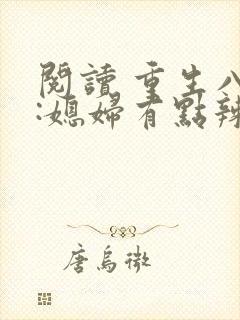 閱讀 重生八
:媳婦有點辣
唐烏微